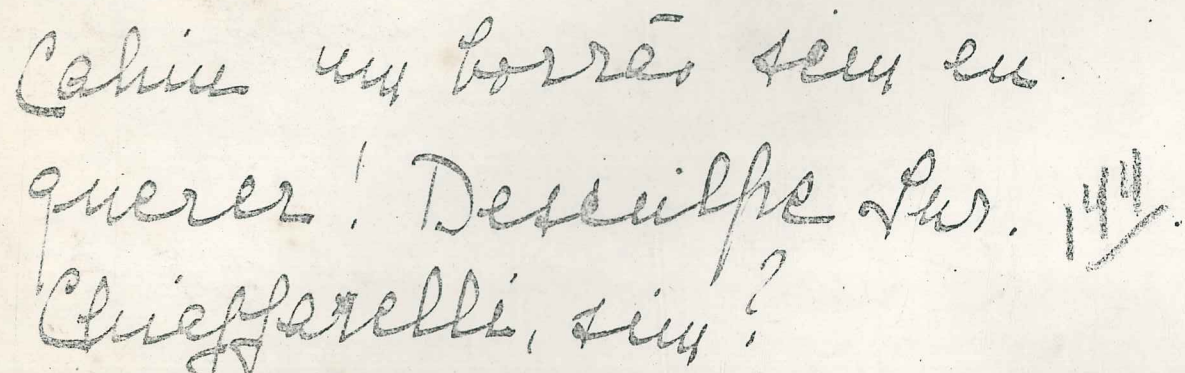 Cahiu um borrão sem eu
querer! Desculpe Snr. 144
Chiaffarelli, sim?